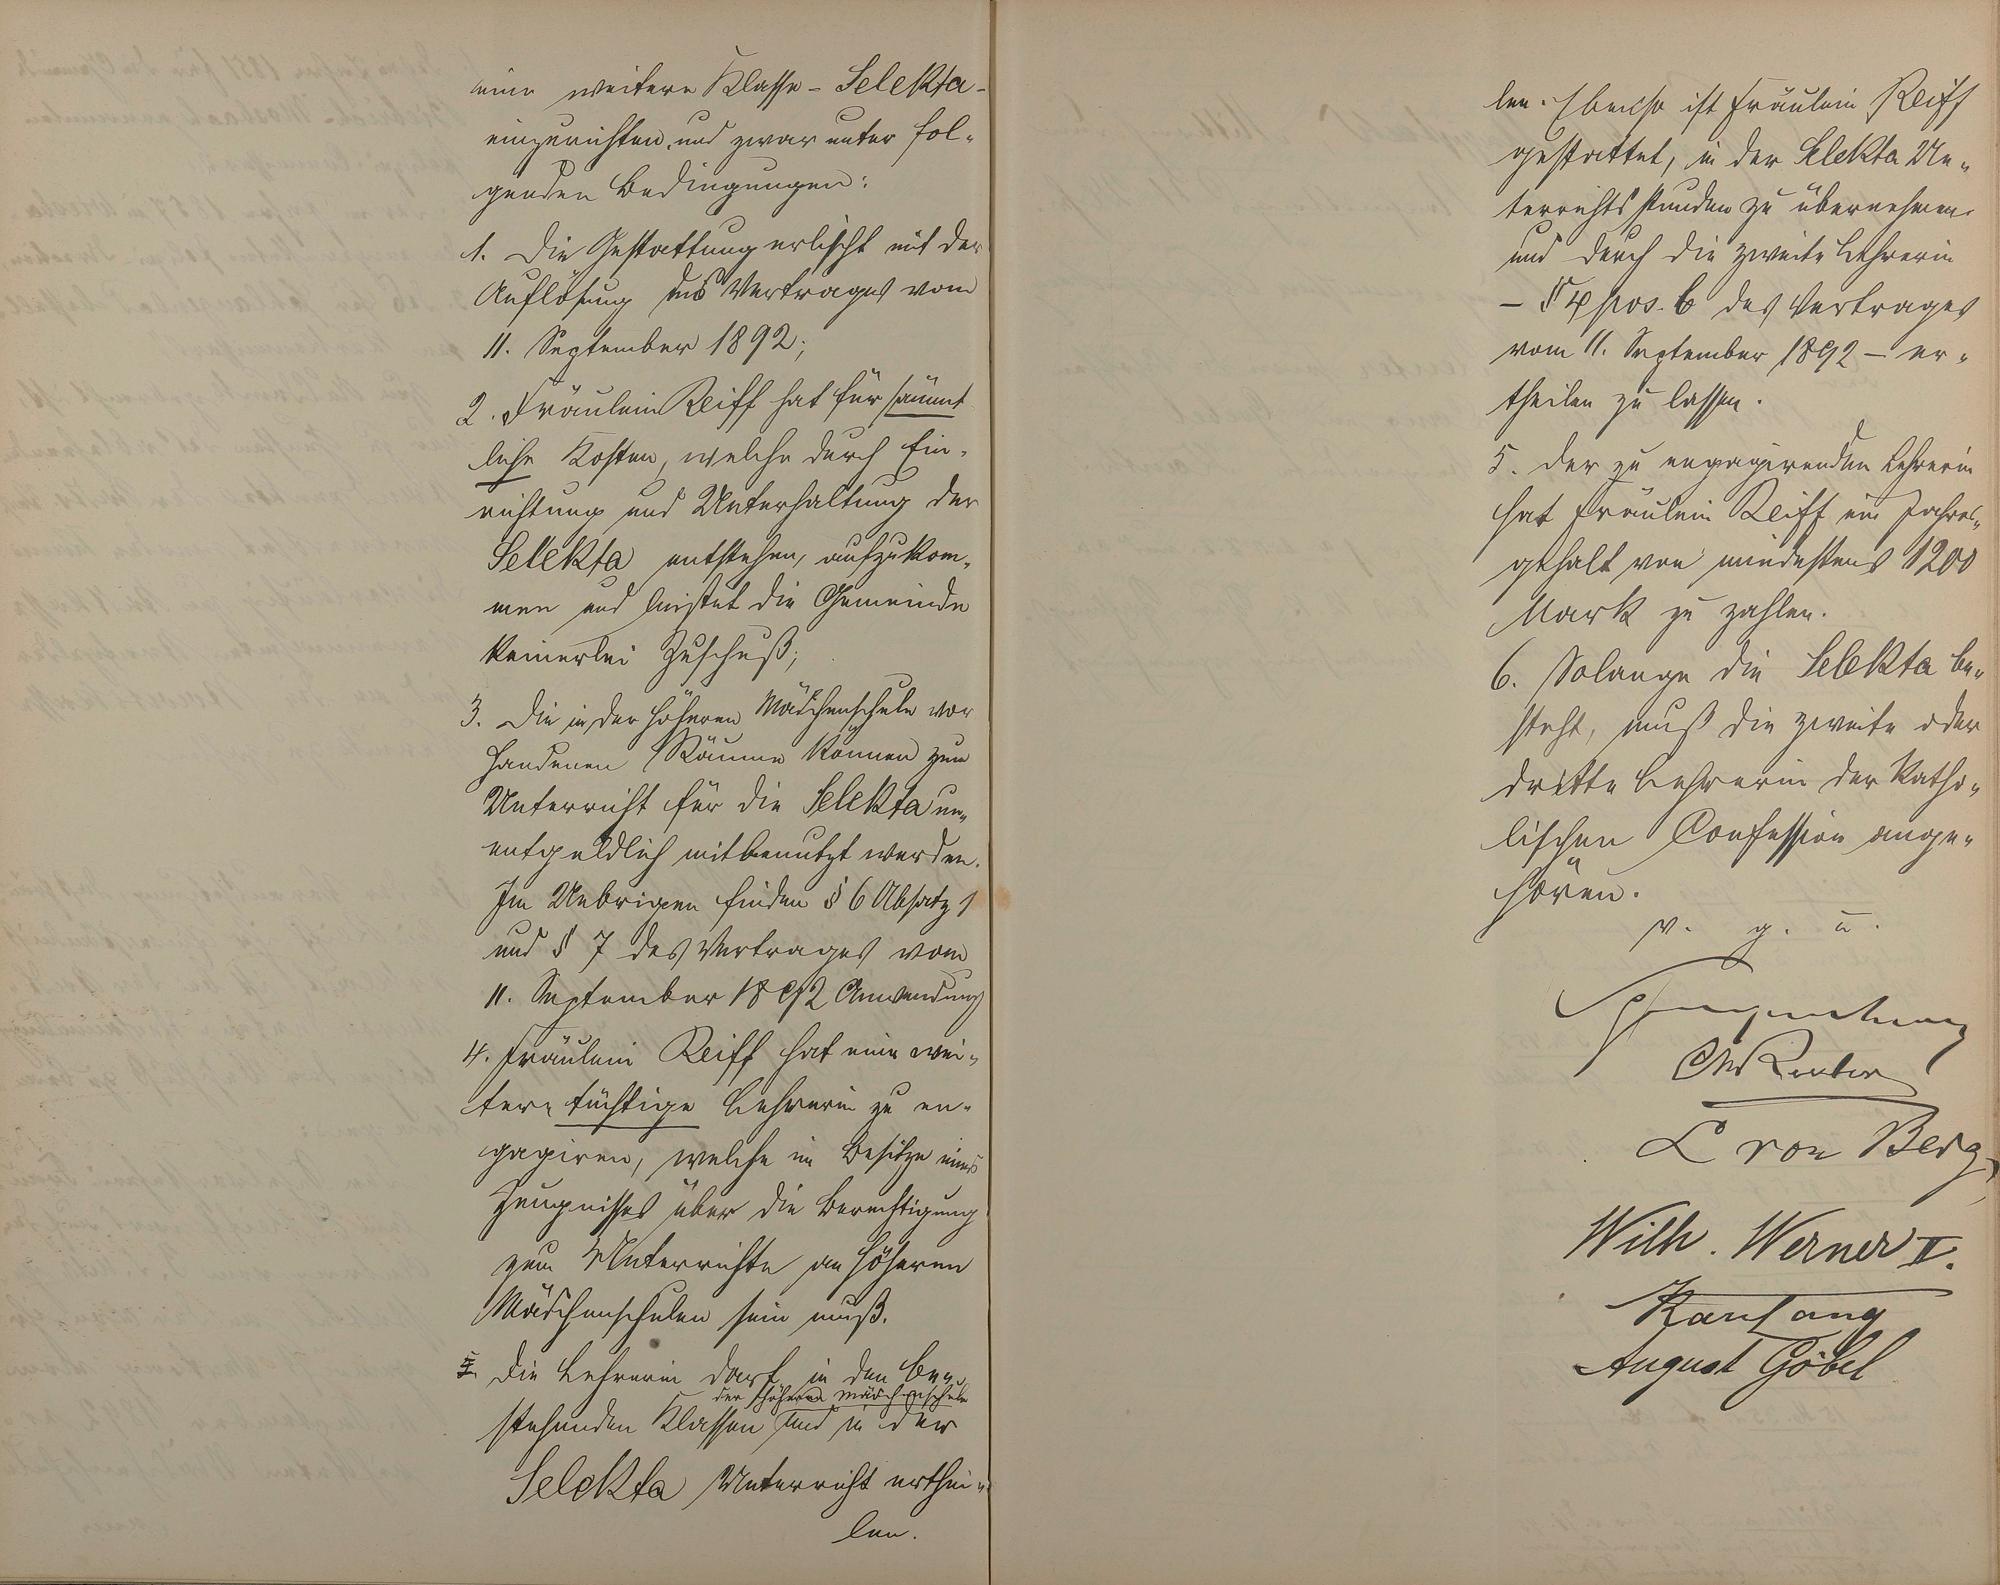 eine weitere Klasse - Selekta -
einzurichten, und zwar unter fol-
genden Bedingungen:
1. Die Gestattung erlischt mit der
Auflösung des Vertrages vom
11. September 1892;
2. Fräulein Reiff hat für sämmt
liche Kosten, welche durch Ein-
richtung und Unterhaltung der
Selekta entstehen, aufzukom-
men und leistet die Gemeinde
keinerlei Zuschuß;
3. Die in der höheren Mädchenschule vor
handenen Räume können zum
Unterricht für die Selekta un-
entgeldlich mitbenutzt werden.
Im Uebrigen finden § 6 Absatz 1
und § 7 des Vertrages vom
11. September 1892 Anwendung
4. Fräulein Reiff hat eine wei-
tere tüchtige Lehrerin zu en-
gagiren, welche im Besitze eines
Zeugnisses über die Berechtigung
zum Unterrichte an höheren
Mädchenschulen sein muß.
Die Lehrerin darf in den be-
der höheren Mädchenschule
stehenden Klassen und in der
Selekta Unterricht erthei-
len.
len. Ebenso ist Fräulein Reiff
gestattet, in der Selekta Un-
terrichtsstunden zu übernehmen
und durch die zweite Lehrerin
- § 4 pos. b des Vertrages
vom 11. September 1892 - er-
theilen zu lassen.
5. Der zu engagirenden Lehrerin
hat Fräulein Reiff ein Jahres-
gehalt von mindestens 1200
Mark zu zahlen.
6. Solange die Selekta be-
steht, muß die zweite oder
dritte Lehrerin der katho-
lischen Confession ange-
hören.
v. g. u.
L von Berg
Wilh. Werner II.
August Göbel